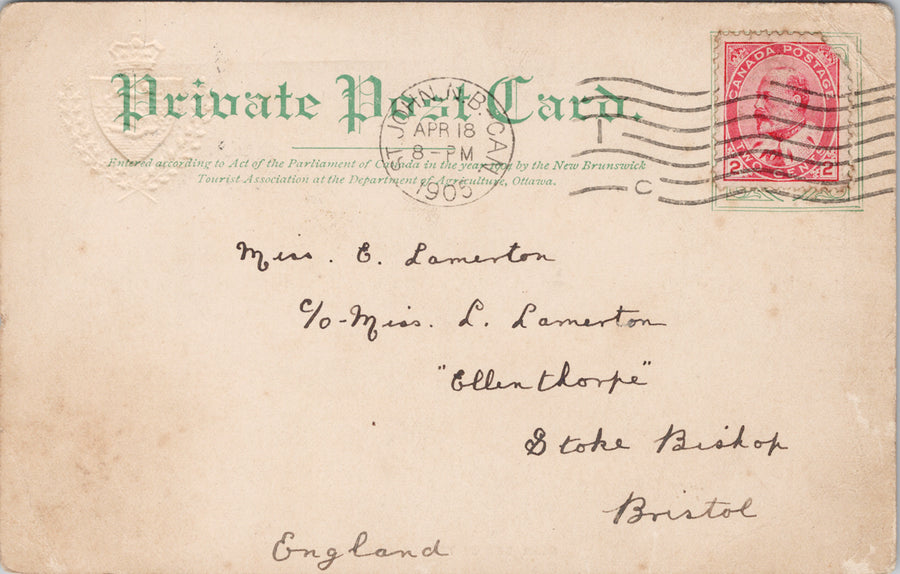 Private Post Card.
ST. JOHN, N.B. CA
APR 18
8 - PM
1905
T
C
CANADA POSTAGE
2 TWO CENTS 2
Entered according to Act of the Parliament of Canada in the year by the New Brunswick
Tourist Association at the Department of Agriculture, Ottawa.
Miss. E. Lamerton
c/o - Miss. L. Lamerton
"Ellenthorpe"
Stoke Bishop
Bristol
England